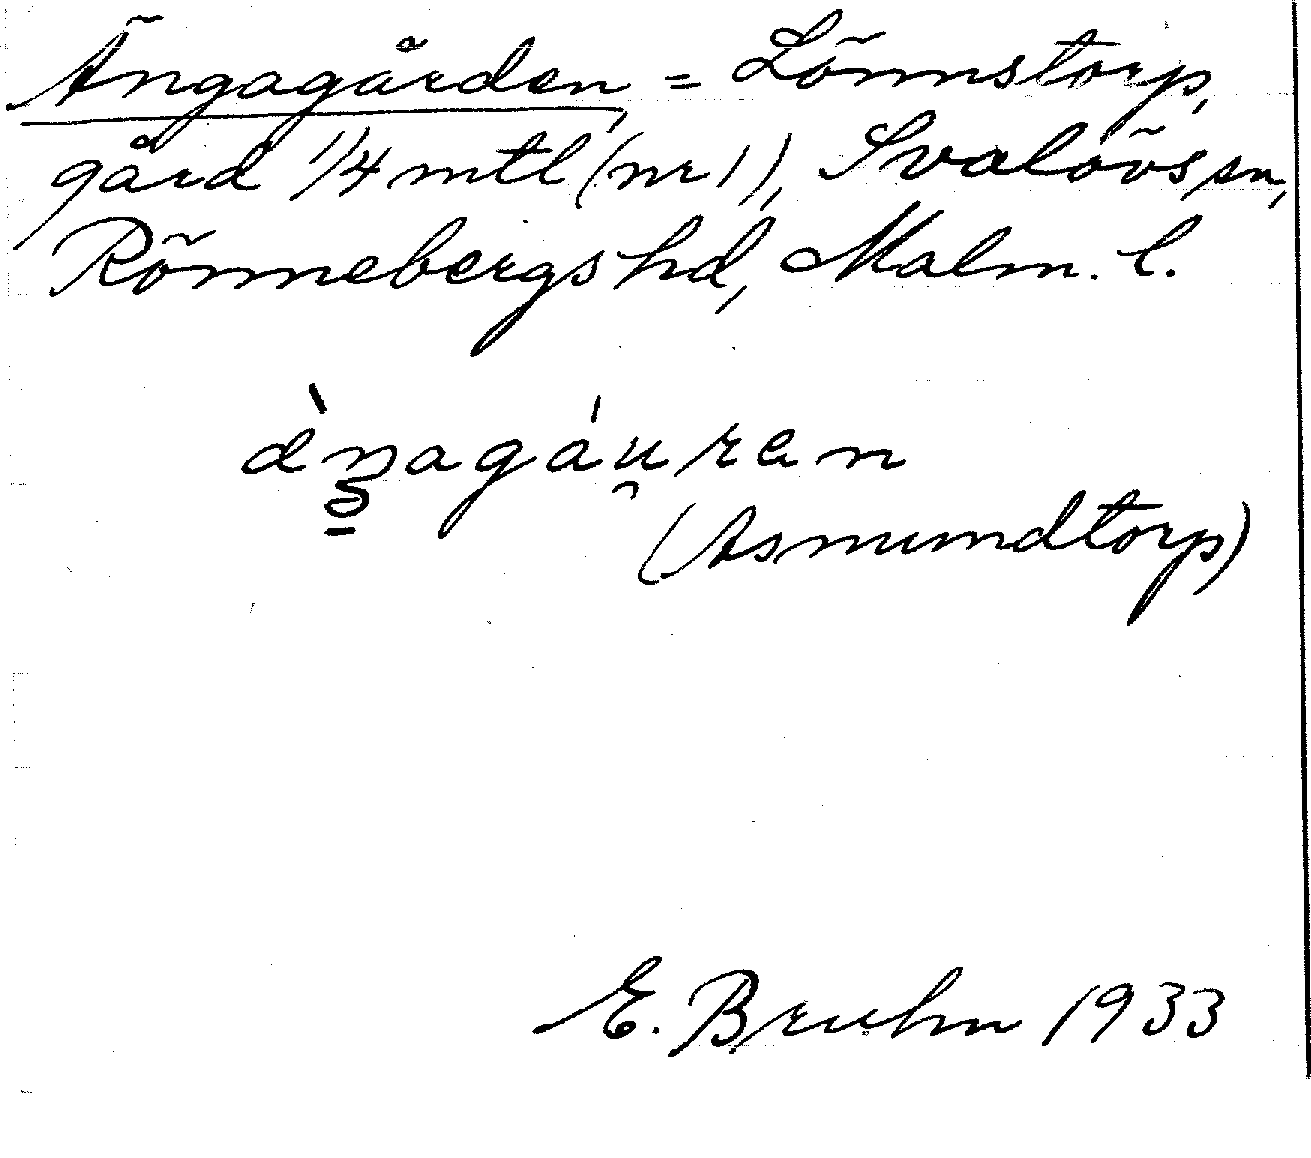 Ängagården, = Lönnstorp,
gård 1/4 mtl (nr 1), Svalövs sn,
Rönnebergs hd, Malm. l.
(Asmundtorp)
E. Bruhn 1933